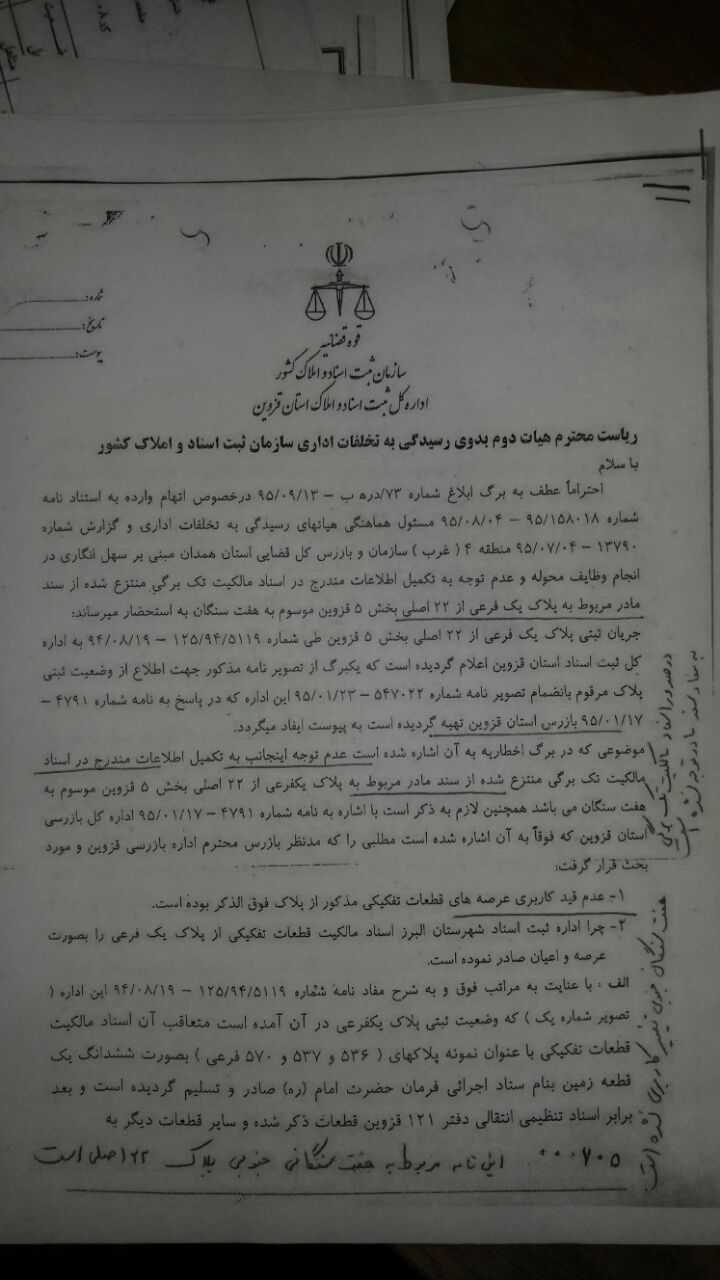 ۱۱
شماره:
تاریخ:
پیوست:
قوه قضائیه
سازمان ثبت اسناد و املاک کشور
اداره کل ثبت اسناد و املاک استان قزوین
ریاست محترم هیات دوم بدوی رسیدگی به تخلفات اداری سازمان ثبت اسناد و املاک کشور
با سلام
احتراماً عطف به برگ ابلاغ شماره ۷۳/دره ب – ۹۵/۰۹/۱۳ درخصوص اتهام وارده به استناد نامه
شماره ۹۵/۱۵۸۰۱۸ – ۹۵/۰۸/۰۴ مسئول هماهنگی هیاتهای رسیدگی به تخلفات اداری و گزارش شماره
۱۳۷۹۰ – ۹۵/۰۷/۰۴ منطقه ۴ ( غرب ) سازمان و بازرس کل قضایی استان همدان مبنی بر سهل انگاری در
انجام وظایف محوله و عدم توجه به تکمیل اطلاعات مندرج در اسناد مالکیت تک برگی منتزع شده از سند
مادر مربوط به پلاک یک فرعی از ۲۲ اصلی بخش ۵ قزوین موسوم به هفت سنگان به استحضار میرساند:
جریان ثبتی پلاک یک فرعی از ۲۲ اصلی بخش ۵ قزوین طی شماره ۱۲۵/۹۴/۵۱۱۹ – ۹۴/۰۸/۱۹ به اداره
کل ثبت اسناد استان قزوین اعلام گردیده است که یکبرگ از تصویر نامه مذکور جهت اطلاع از وضعیت ثبتی
پلاک مرقوم بانضمام تصویر نامه شماره ۵۴۷۰۲۲ – ۹۵/۰۱/۲۳ این اداره که در پاسخ به نامه شماره ۴۷۹۱ –
۹۵/۰۱/۱۷ بازرس استان قزوین تهیه گردیده است به پیوست ایفاد میگردد.
موضوعی که در برگ اخطاریه به آن اشاره شده است عدم توجه اینجانب به تکمیل اطلاعات مندرج در اسناد
مالکیت تک برگی منتزع شده از سند مادر مربوط به پلاک یکفرعی از ۲۲ اصلی بخش ۵ قزوین موسوم به
هفت سنگان می باشد همچنین لازم به ذکر است با اشاره به نامه شماره ۴۷۹۱ – ۹۵/۰۱/۱۷ اداره کل بازرسی
استان قزوین که فوقاً به آن اشاره شده است مطلبی را که مدنظر بازرس محترم اداره بازرسی قزوین و مورد
بحث قرار گرفت:
۱- عدم قید کاربری عرصه های قطعات تفکیکی مذکور از پلاک فوق الذکر بوده است.
۲- چرا اداره ثبت اسناد شهرستان البرز اسناد مالکیت قطعات تفکیکی از پلاک یک فرعی را بصورت
عرصه و اعیان صادر نموده است.
الف : با عنایت به مراتب فوق و به شرح مفاد نامه شماره ۱۲۵/۹۴/۵۱۱۹ – ۹۴/۰۸/۱۹ این اداره (
تصویر شماره یک ) که وضعیت ثبتی پلاک یکفرعی در آن آمده است متعاقب آن اسناد مالکیت
قطعات تفکیکی با عنوان نمونه پلاکهای ( ۵۳۶ و ۵۳۷ و ۵۷۰ فرعی ) بصورت ششدانگ یک
قطعه زمین بنام ستاد اجرائی فرمان حضرت امام (ره) صادر و تسلیم گردیده است و بعد
برابر اسناد تنظیمی انتقالی دفتر ۱۲۱ قزوین قطعات ذکر شده و سایر قطعات دیگر به
این نامه مربوط به هفت سنگانی جنوبی پلاک ۲۲ اصلی است
در صدور اسناد مالکیت تک برگی
به مفاد سند مادر توجه نشده است
هفت سنگان جنوبی تغییر کاربری نشده است